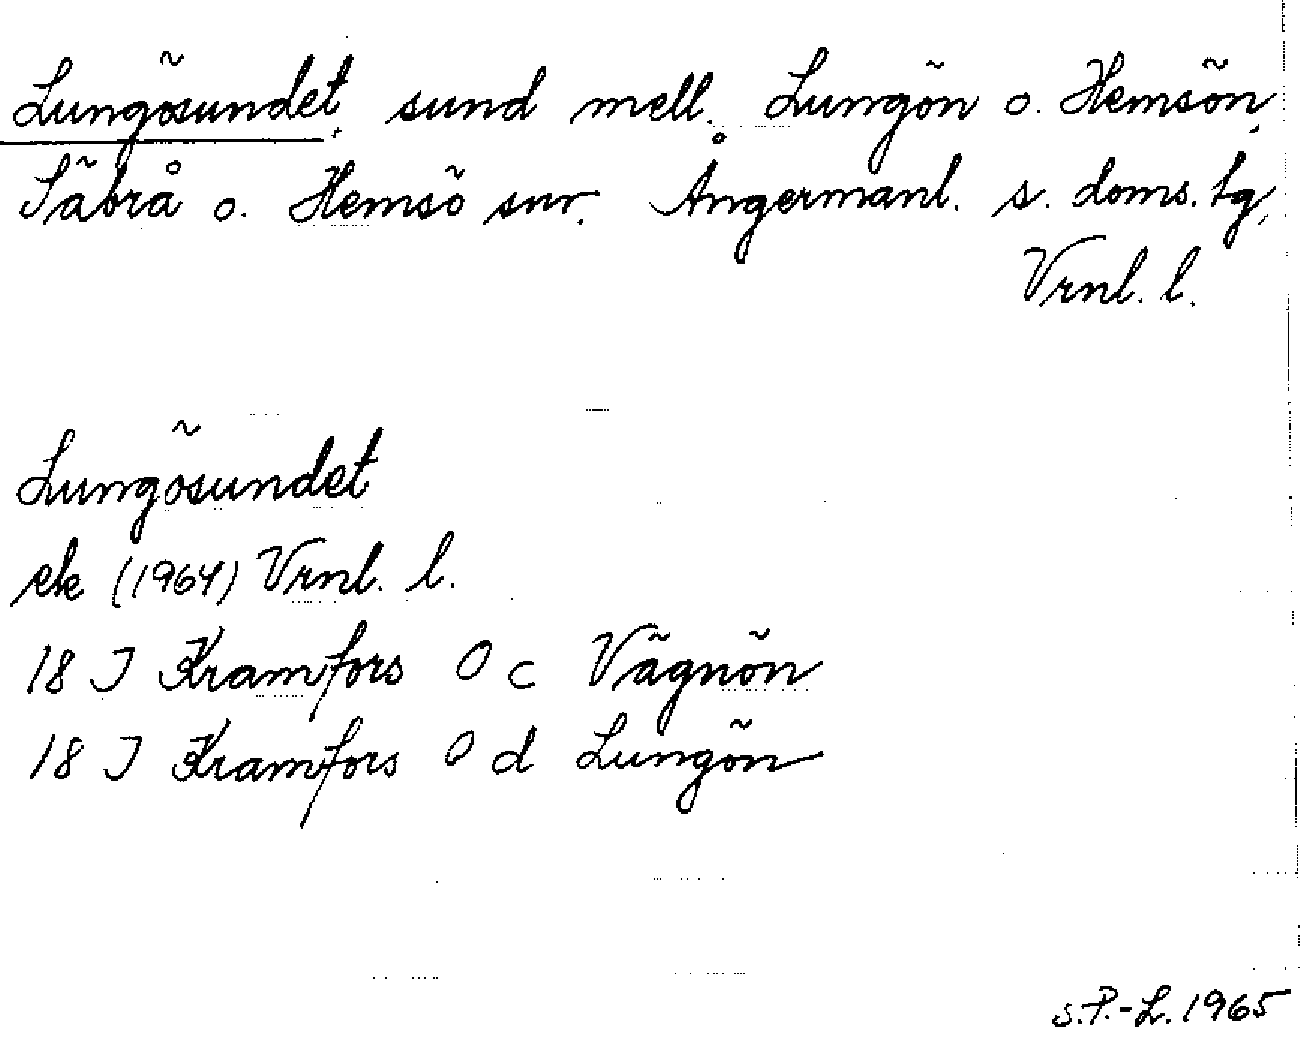 Lungösundet, sund mell. Lungön o. Hemsön,
Säbrå o. Hemsö snr. Ångermanl. s. doms. tg,
Vrnl. l.
Lungösundet
ek (1964) Vrnl. l.
18 I Kramfors 0 c Vägnön
18 I Kramfors 0 d Lungön
S.P.-L. 1965